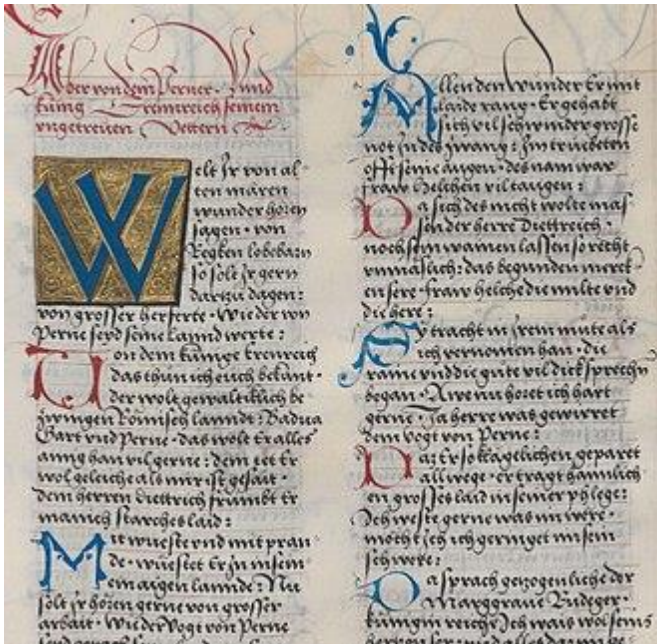 Aber von dem Perner · Vnd
künig Ermreich seinem
vngetreuen Vettern
Welt Jr von al-
ten mären
wunder hören
sagen · von
Regken lobebärn
so solt jr gern
dartzu dagen:
von grosser herferte · Wie der von
Perne seyd seine Lannd werte:
Von dem künige Ermreich
das thun ich euch bekant ·
der wolt gewaltiklich be-
zwingen Römisch lanndt: Badua
Gart vnd Perne · das wolt Er alles
ainig han vil gerne: dem tet Er
wol geleiche als mir ist gesait ·
dem herren Diettrich frumbt Er
manich starches laid:
Mit wueste vnd mit pran-
de · wuestet Er jn in sein-
em aigen lannde: Nu
solt jr hören gerne von grosser
arbait · wie der Vogt von Perne
Allen den wunder Er mit
laide rang · Er gehabt
sich vil schwinder grosse
not jn des zwang: Im truebeten
offt seine augen · des nam war
fraw Helchen vil taugen:
Da sich des nicht wolte mas-
sen der herre Diettreich ·
noch sein wainen lassen so recht
vnmäslich: das begunden merck-
en sere · fraw helche die milte vnd
die here:
Sy tracht in jrem mute als
ich vernomen han · die
raine vnd die gute vil dick sprechn
began · Awe nu höret ich hart
gerne · Ja herre was gewirret
dem Vogt von Perne:
Daz Er so klagelichen geparet
alle wege · er tragt haimlich-
en grosses laid in seiner phlege:
Ich weste gerne was im were ·
möcht ich ich geringet im sein
schwere:
Da sprach getzogenliche der
Marggraue Rudeger ·
künigin reiche Ich wais wol seins